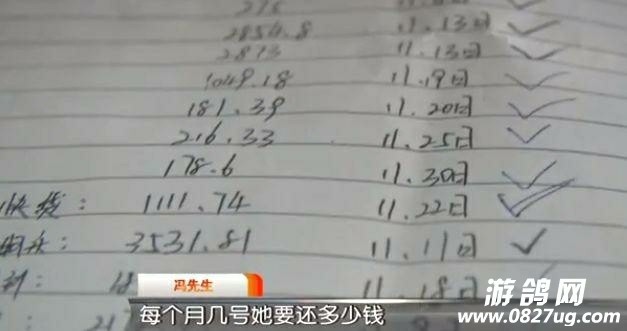 275
2854.8 11.13日 ✓
2873 11.13日 ✓
1049.18 11.19日 ✓
181.39 11.20日 ✓
216.33 11.25日 ✓
178.6 11.30日 ✓
快钱: 1111.74 11.22日 ✓
3531.81 11.11日 ✓
18 11.18日
冯先生
每个月几号她要还多少钱
游鸽网
www.0827ug.com